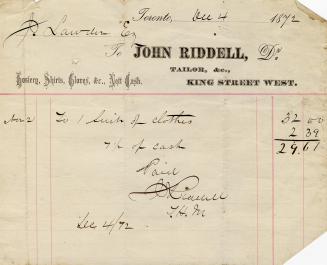 Toronto, Dec 4 1872
J. Lawder Esq
To JOHN RIDDELL, Dr.
TAILOR, &c.,
Hosiery, Shirts, Gloves, &c., Nett Cash. KING STREET WEST.
Nov 2 To 1 Suit of clothes 32 00
7½ of cash 2 39
29.61
Paid
J Riddell
Dec 4/72